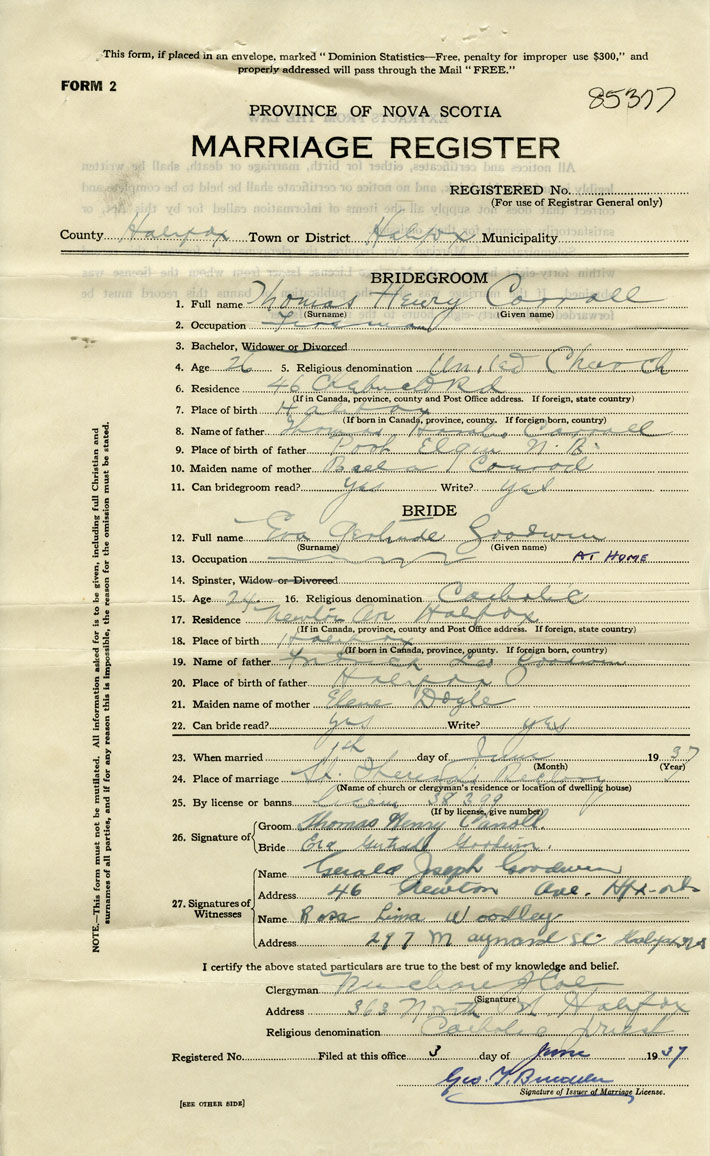 This form, if placed in an envelope, marked "Dominion Statistics—Free, penalty for improper use $300," and
properly addressed will pass through the Mail "FREE."
FORM 2
85377
PROVINCE OF NOVA SCOTIA
MARRIAGE REGISTER
REGISTERED No.
(For use of Registrar General only)
County Halifax Town or District Halifax Municipality
BRIDEGROOM
1. Full name Thomas Henry Carroll
(Surname) (Given name)
2. Occupation Fireman
3. Bachelor, Widower or Divorced
4. Age 26 5. Religious denomination United Church
6. Residence 46 Chebucto Rd
(If in Canada, province, county and Post Office address. If foreign, state country)
7. Place of birth Halifax
(If born in Canada, province, county. If foreign born, country)
8. Name of father Thomas Carroll
9. Place of birth of father Port Elgin N.B.
10. Maiden name of mother Conrod
11. Can bridegroom read? Yes Write? yes
BRIDE
12. Full name Eva Gertrude Goodwin
(Surname) (Given name)
13. Occupation AT HOME
14. Spinster, Widow or Divorced
15. Age 24 16. Religious denomination Catholic
17. Residence Newton Av Halifax
(If in Canada, province, county and Post Office address. If foreign, state country)
18. Place of birth Halifax
(If born in Canada, province, county. If foreign born, country)
19. Name of father Goodwin
20. Place of birth of father Halifax
21. Maiden name of mother Doyle
22. Can bride read? yes Write? yes
23. When married day of June 1937
(Month) (Year)
24. Place of marriage St. Theresa's Rectory
(Name of church or clergyman's residence or location of dwelling house)
25. By license or banns 38399
(If by license, give number)
26. Signature of
Groom Thomas Henry Carroll.
Bride Eva Gertrude Goodwin.
27. Signatures of Witnesses
Name Gerald Joseph Goodwin
Address 46 Newton Ave.
Name Rosa Lima Woodley
Address 297 Maynard St
I certify the above stated particulars are true to the best of my knowledge and belief.
Clergyman
(Signature)
Address 363 North St. Halifax
Religious denomination Catholic Priest
Registered No. Filed at this office 3 day of June 1937
Geo. T.
Signature of Issuer of Marriage License.
[SEE OTHER SIDE]
NOTE.—This form must not be mutilated. All information asked for is to be given, including full Christian and
surnames of all parties, and if for any reason this is impossible, the reason for the omission must be stated.